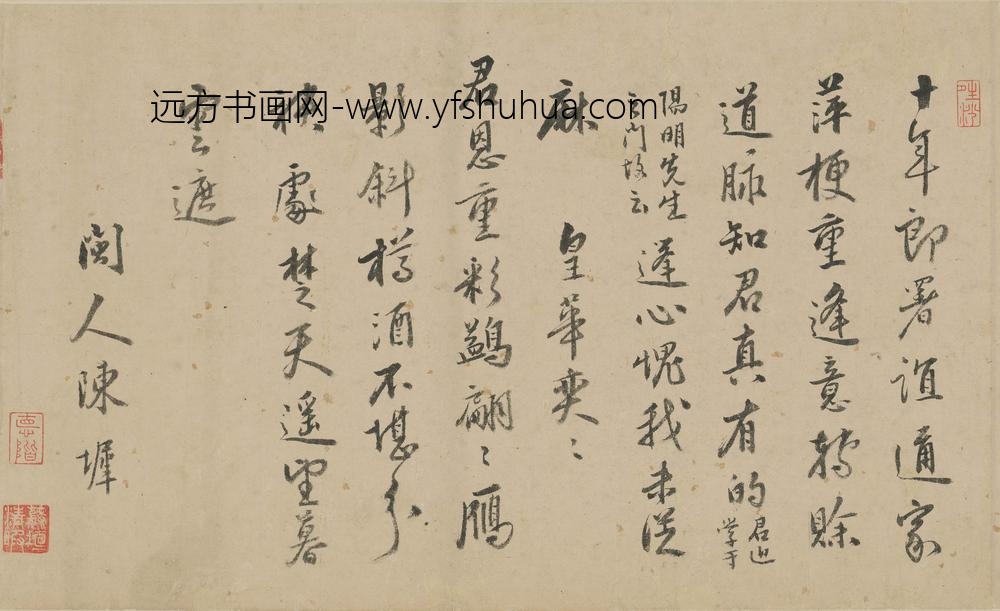 十年郎署誼通家
萍梗重逢意轉賒
道脉知君真有的君近学于
陽明先生之門故云蓬心愧我未從
麻 皇華奕〻
君恩重彩鷁翩〻鴈
影斜樽酒不堪分
袂處楚天遥望暮
雲遮
閩人陳墀
远方书画网-www.yfshuhua.com